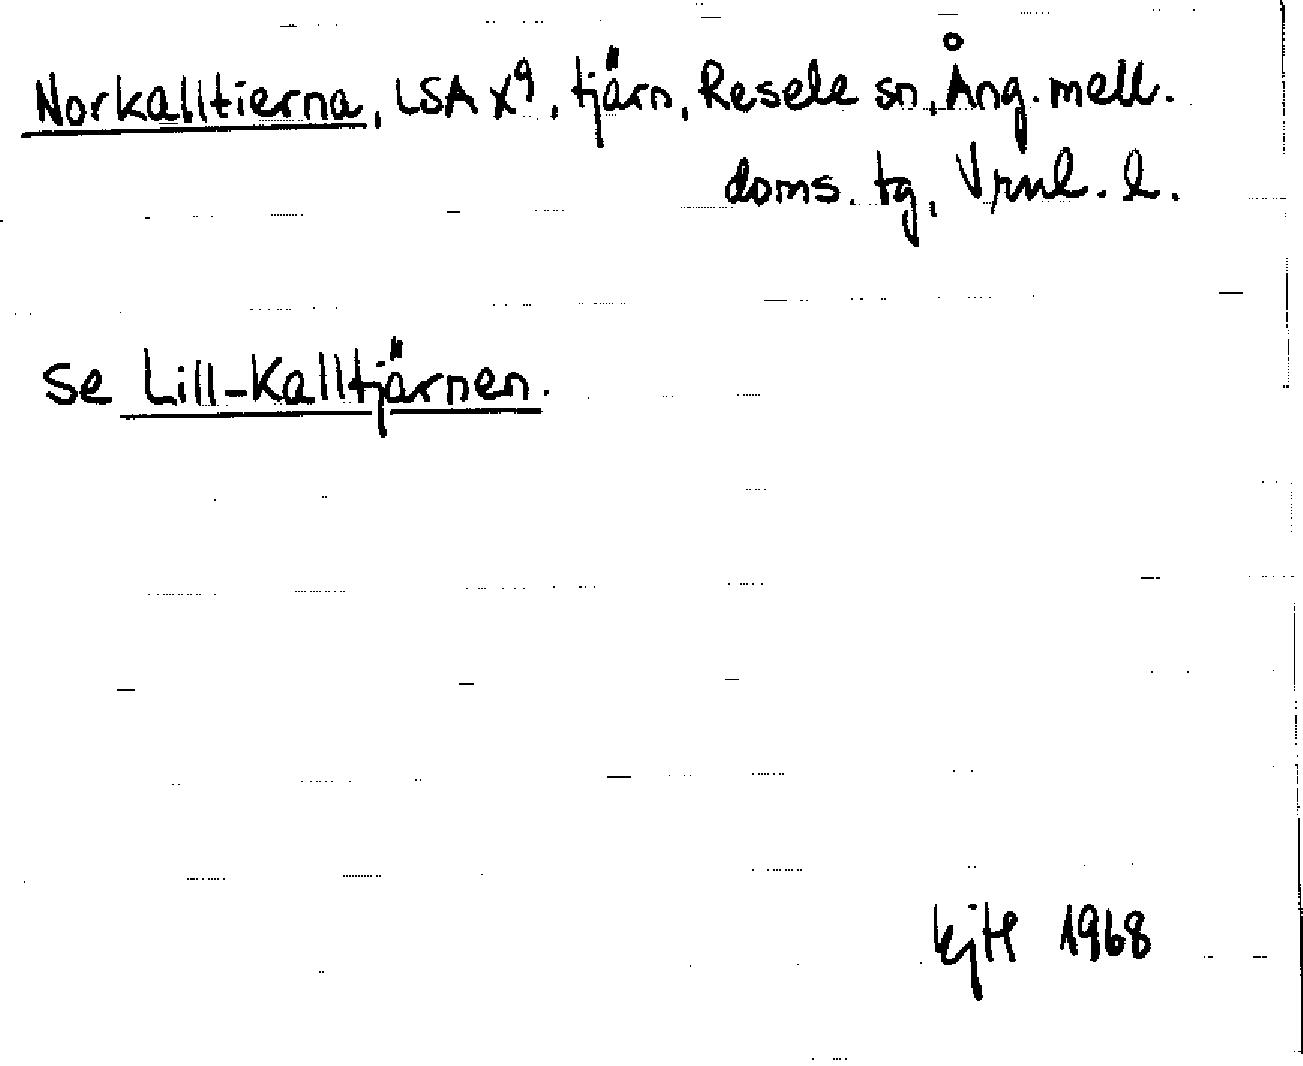 Norkalltierna, LSA X9, tjärn, Resele sn, Ång. mell.
doms. tg, Vrnl. l.
se Lill-Kalltjärnen.
1968